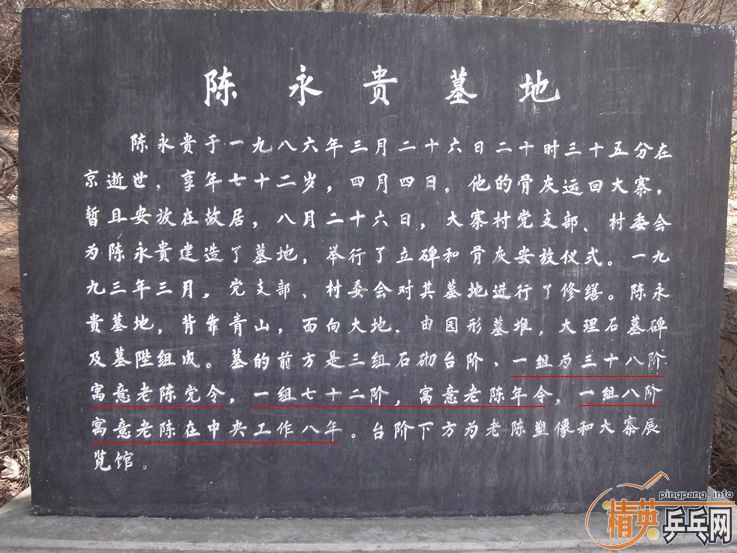 陈永贵墓地
陈永贵于一九八六年三月二十六日二十时三十五分在
京逝世，享年七十二岁，四月四日，他的骨灰运回大寨，
暂且安放在故居，八月二十六日，大寨村党支部、村委会
为陈永贵建造了墓地，举行了立碑和骨灰安放仪式。一九
九三年三月，党支部、村委会对其墓地进行了修缮。陈永
贵墓地，背靠青山，面向大地．由园形墓堆，大理石墓碑
及墓陛组成。墓的前方是三组石砌台阶、一组为三十八阶
寓意老陈党令，一组七十二阶，寓意老陈年令，一组八阶
寓意老陈在中央工作八年。台阶下方为老陈塑像和大寨展
览馆。
pingpang.info
精英乒乓网